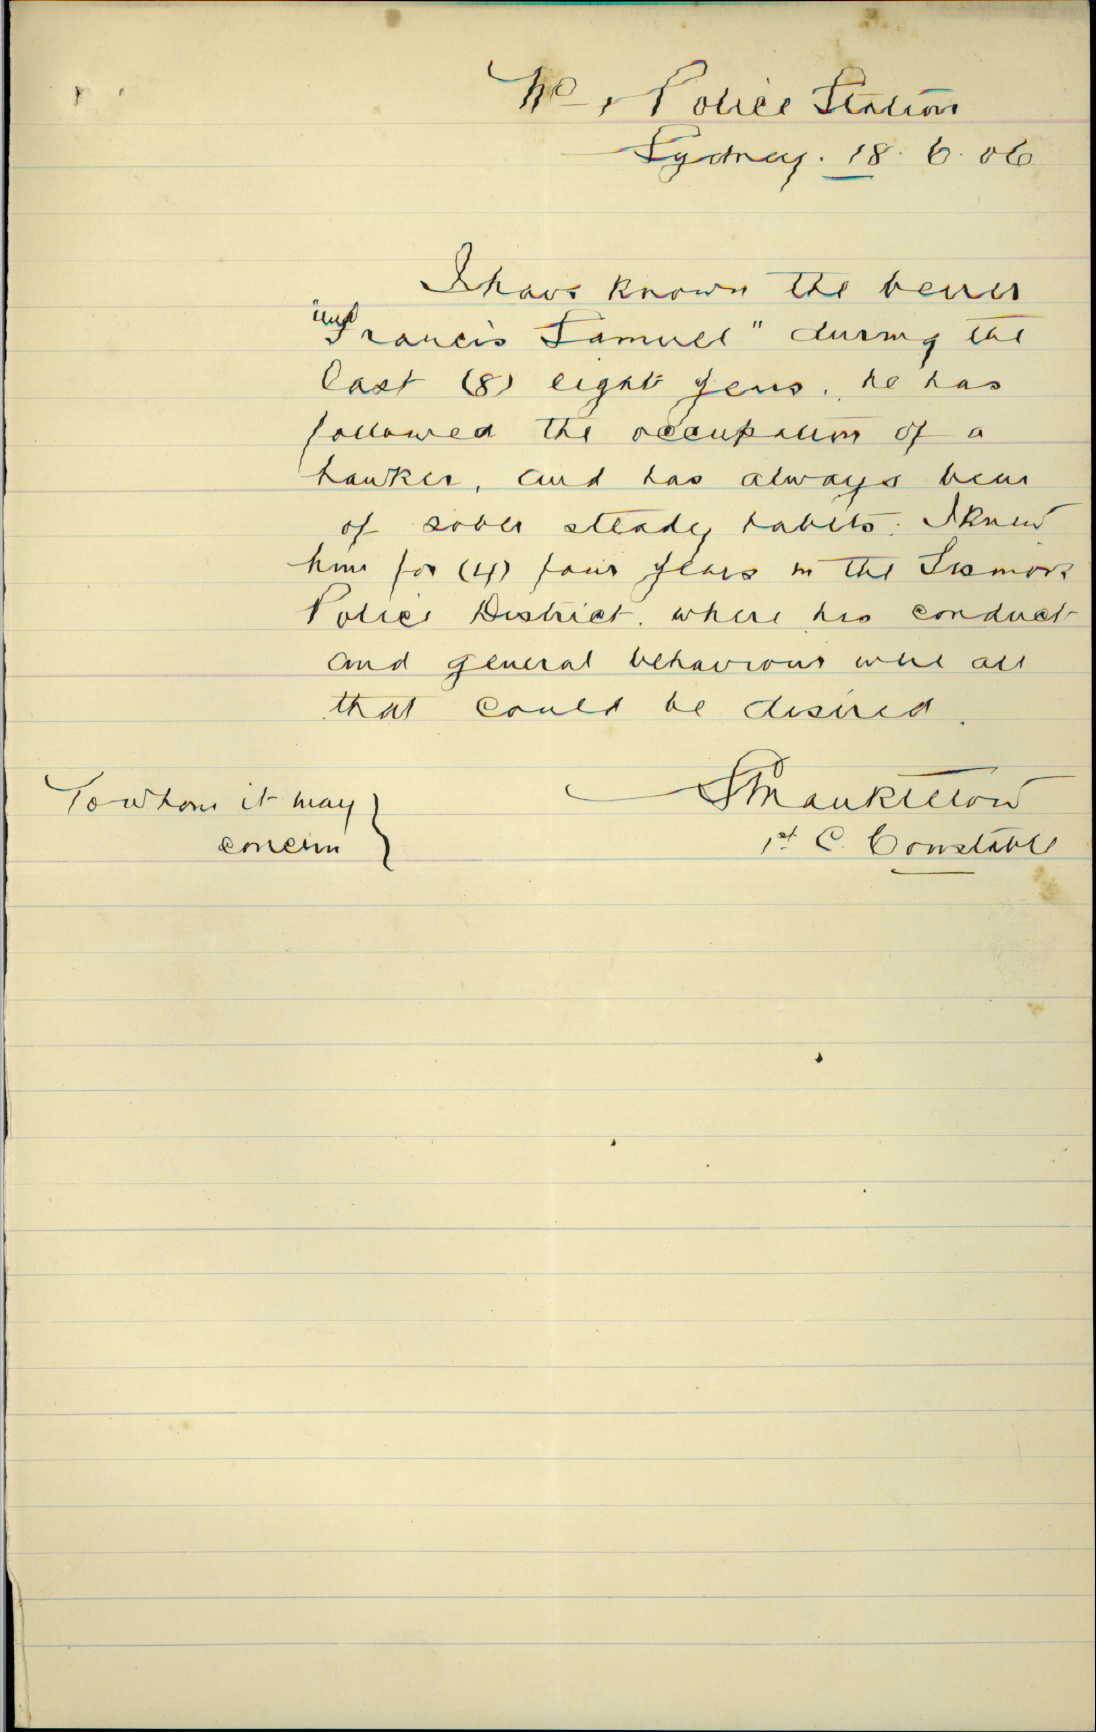 No 1 Police Station
Sydney. 18. 6. 06
I have known the bearer
"Francis Samuel" during the
last (8) eight years. he has
followed the occupation of a
hawker, and has always been
of sober steady habits. I knew
him for (4) four years in the Lismore
Police District. where his conduct
and general behaviour were all
that could be desired.
To whom it may
concern
1st C. Constable